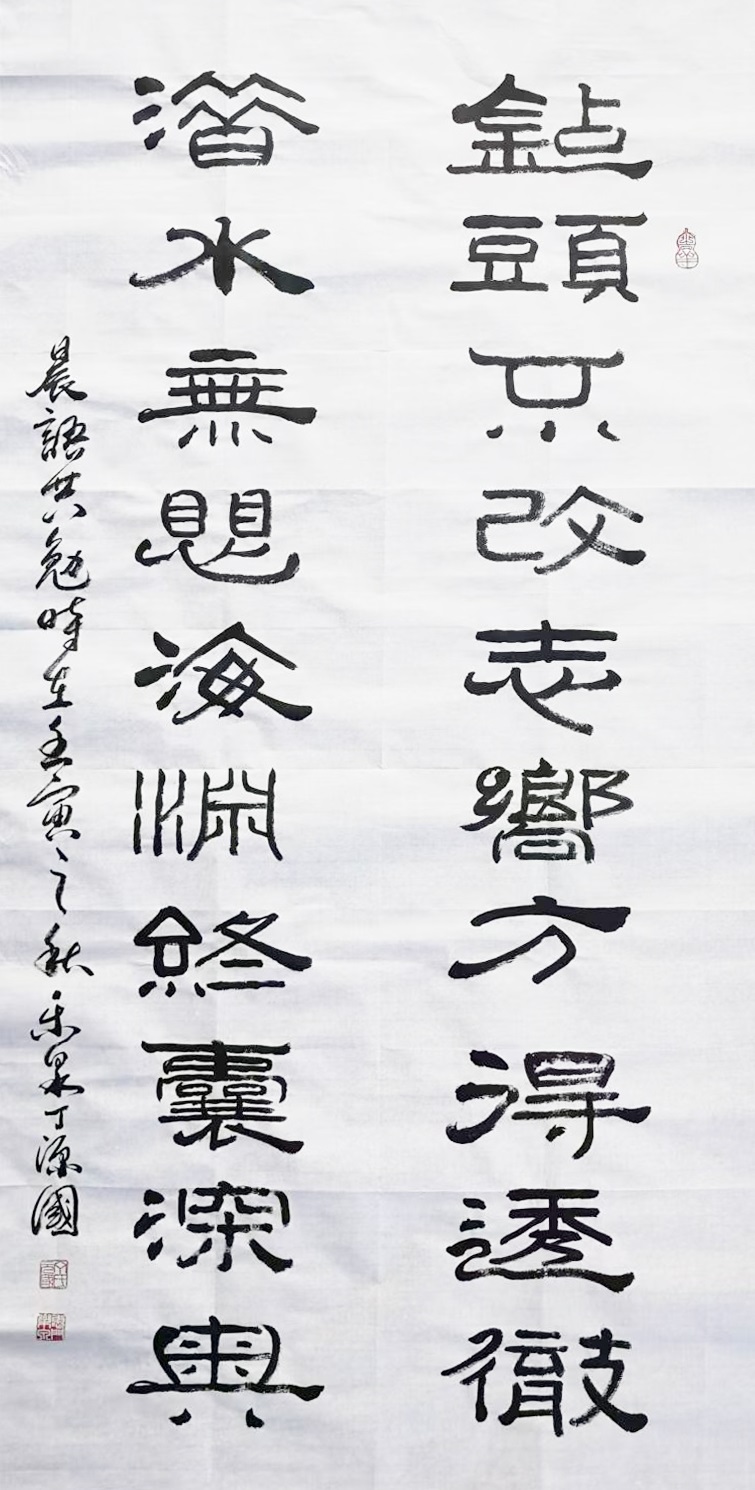 鉆頭只改志嚮方得透徹
潛水無愳海淵終囊深奧
晨語共勉時在壬寅之秋泉丁源國